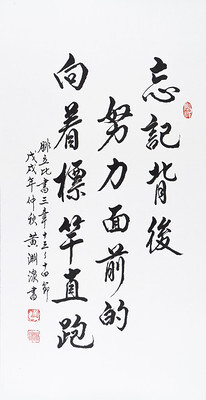 忘記背後
努力面前的
向着標竿直跑
腓立比書三章十三〜十四節
戊戌年仲秋黃淵溁書